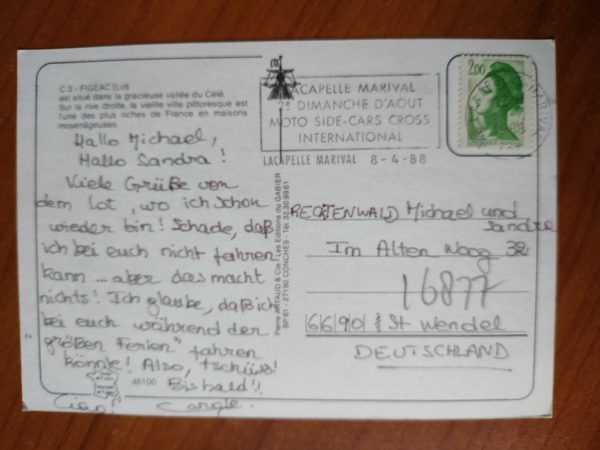 C 3 - FIGEAC (Lot)
est situé dans la gracieuse vallée du Célé.
Sur la rive droite, la vieille ville pittoresque est
l'une des plus riches de France en maisons
moyenâgeuses.
Hallo Michael,
Hallo Sandra!
Viele Grüße von
dem Lot, wo ich schon
wieder bin! Schade, daß
ich bei euch nicht fahren
kann ... aber das macht
nichts! Ich glaube, daß ich
bei euch während der
größen Ferien" fahren
könnte! Also, tschüss!
Bisbald"!
Ciao!
46100
Pierre ARTAUD & Cie / Les Editions du GABIER
BP 61 - 27190 CONCHES - Tél. 32.30.99.61
LACAPELLE MARIVAL
2e DIMANCHE D'AOUT
MOTO SIDE-CARS CROSS
INTERNATIONAL
LACAPELLE MARIVAL 8-4-88
2,00
RECTENWALD Michael und
Sandra
Im Alten Woog 32
16877
6690 St Wendel
DEUTSCHLAND